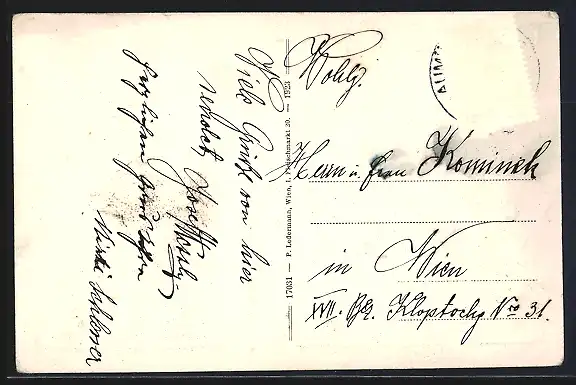 Viele Grüße von hier
sendet Josef
herzlichen Gruß
Mitzi Schlosser
17031 — P. Ledermann, Wien, I. Fleischmarkt 20. — 1923
Wohlg.
Herrn u. Frau Kominek
in Wien
XVII. Bez. Klopstockg. Nro 31.